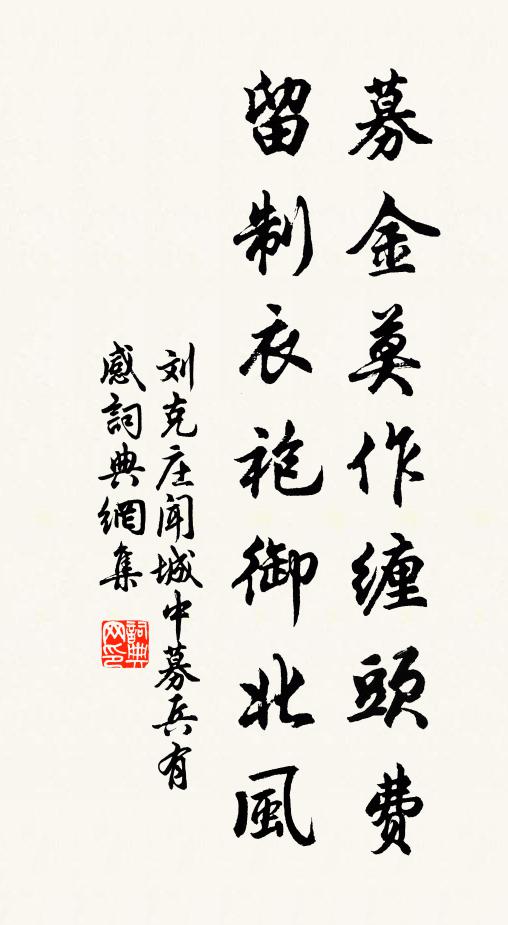 募金莫作缠頭费
留制衣袍御北風
刘克庄闻城中募兵有
感詞典網集
詞典
网印